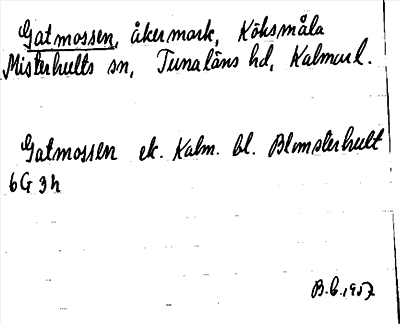 Gatmossen, åkermark, Köksmåla
Misterhults sn, Tunaläns hd, Kalmar l.
Gatmossen ek. Kalm. bl. Blomsterhult
6G 3h
B.L. 1957